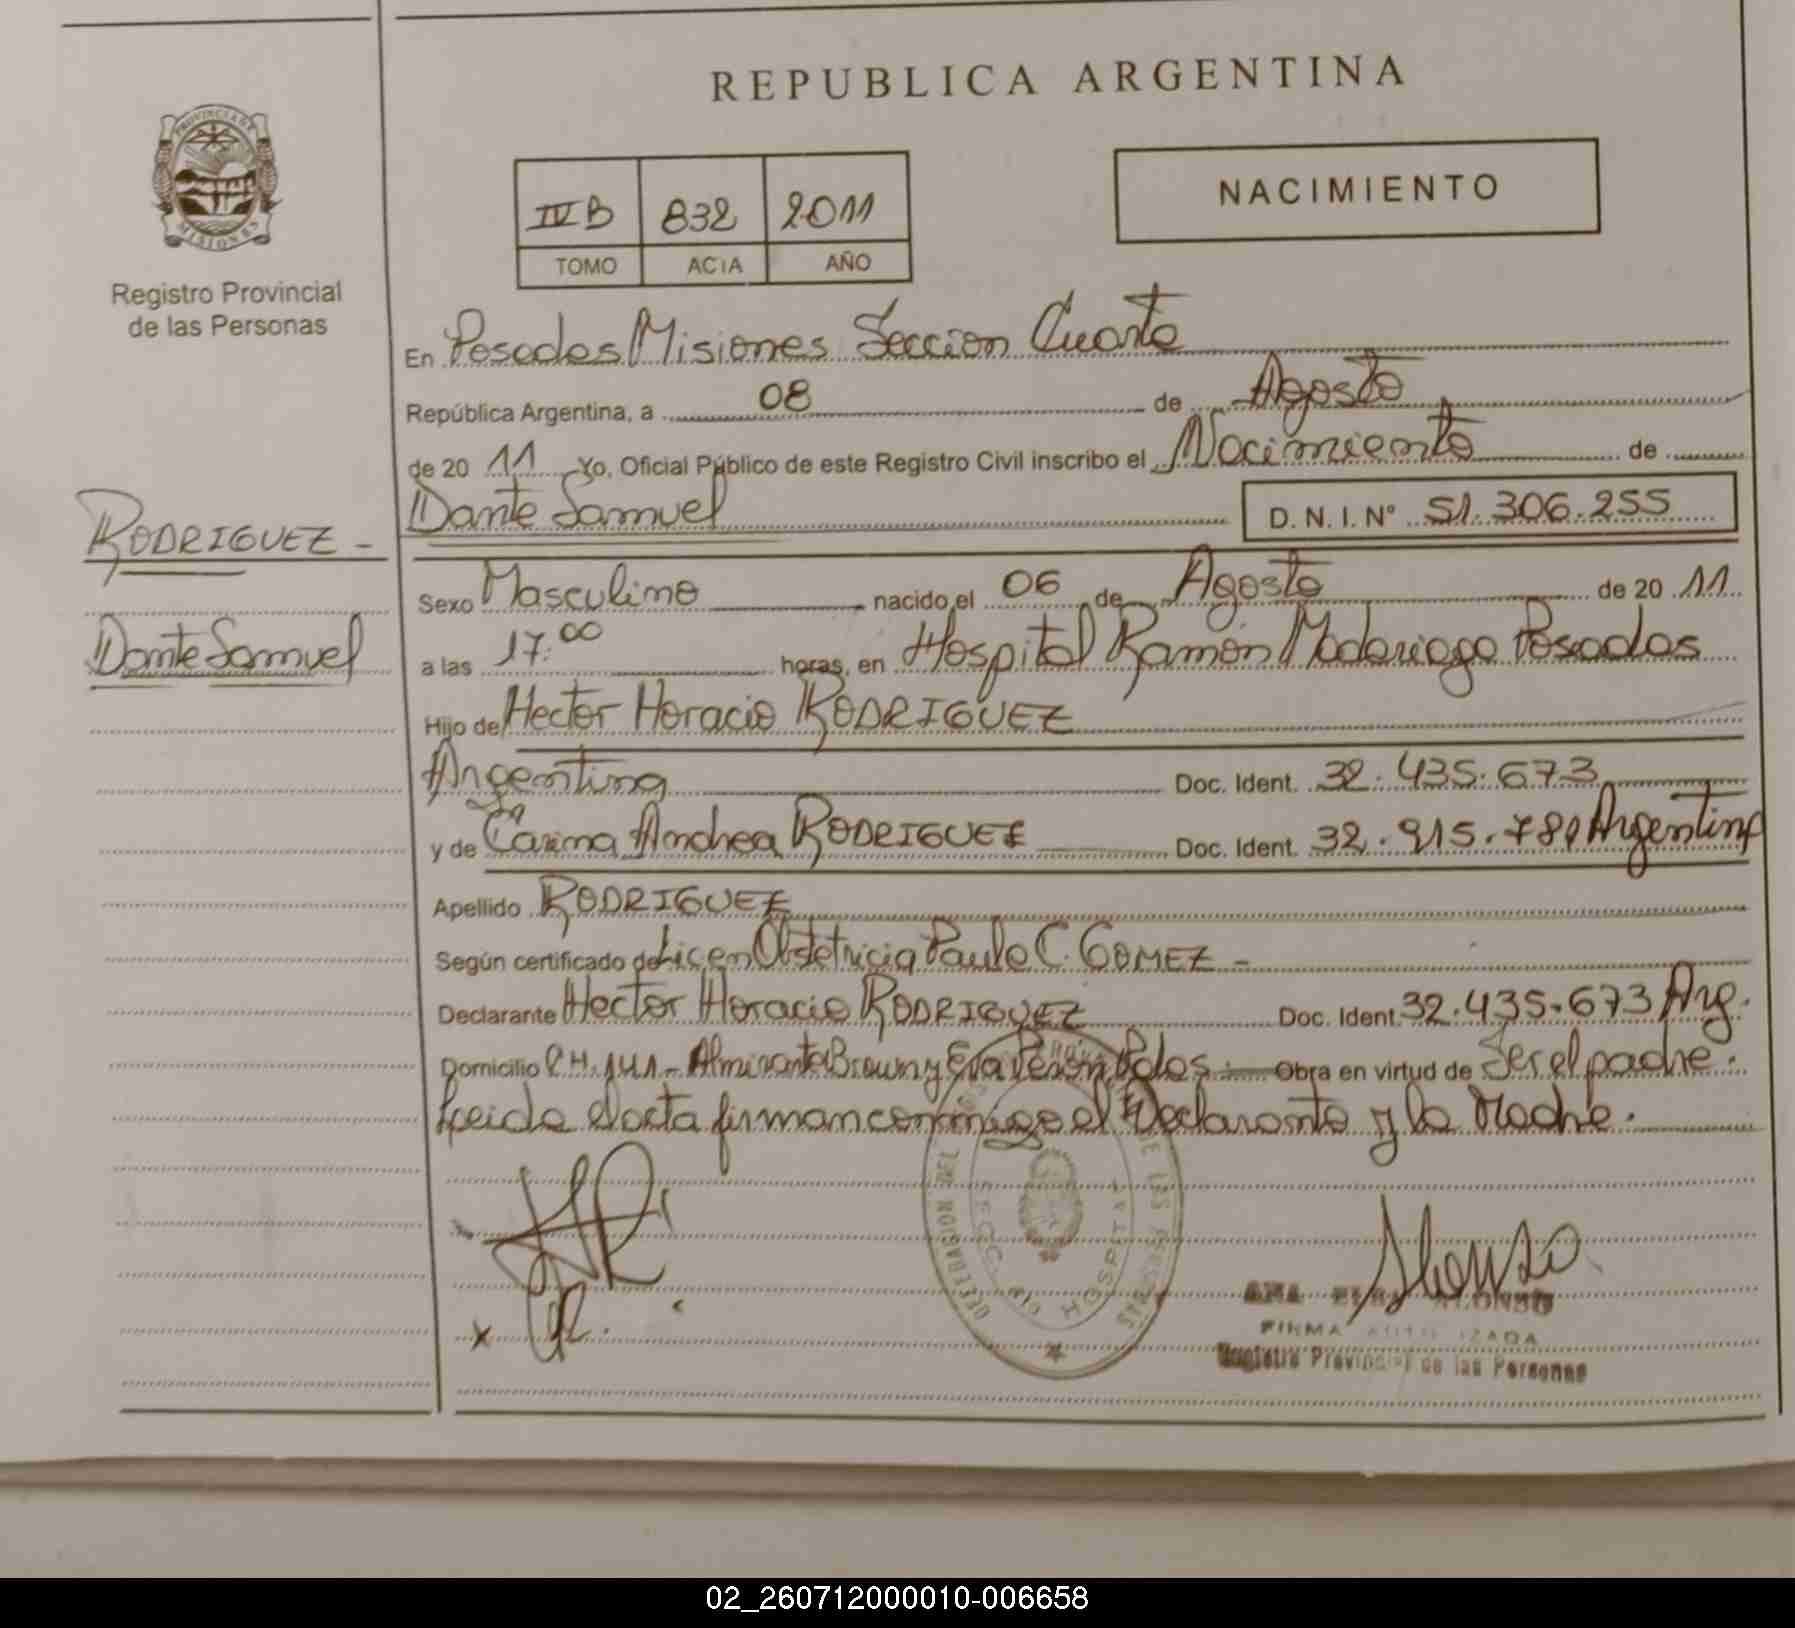 REPUBLICA ARGENTINA
PROVINCIA DE MISIONES
Registro Provincial
de las Personas
IVB 832 2011
TOMO ACTA AÑO
NACIMIENTO
En Posadas Misiones Seccion Cuarta
República Argentina, a 08 de Agosto
de 20 11 Yo, Oficial Público de este Registro Civil inscribo el Nacimiento de
Dante Samuel D.N.I. N° 51.306.255
RODRIGUEZ -
Dante Samuel
Sexo Masculino nacido el 06 de Agosto de 20 11
a las 17:00 horas, en Hospital Ramón Madariaga Posadas
Hijo de Hector Horacio RODRIGUEZ
Argentina Doc. Ident. 32.435.673
y de Carina Andrea RODRIGUEZ Doc. Ident. 32.915.789 Argentina
Apellido RODRIGUEZ
Según certificado de Licen Obstetricia Paula C. GOMEZ -
Declarante Hector Horacio RODRIGUEZ Doc. Ident. 32.435.673 Arg.
Domicilio CH. 141 - Almirante Brown y Eva Perón Pdas. Obra en virtud de Ser el padre.
Leida el acta firman conmigo el Declarante y la Madre.
DE LAS PERSONAS
DELEGACION
SECC. 4ta HOSPITAL
Alonso
ANA ELSA ALONSO
FIRMA AUTORIZADA
Registro Provincial de las Personas
02_260712000010-006658